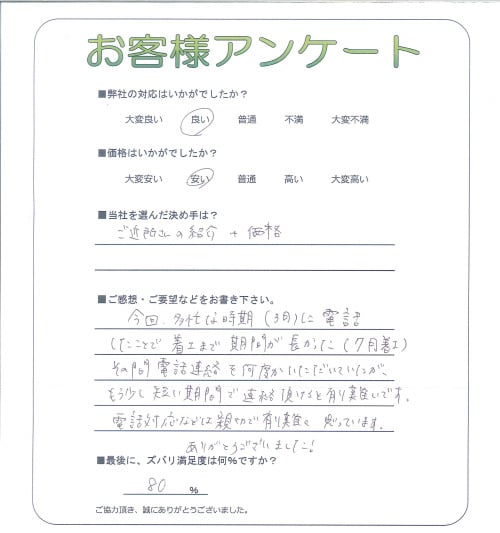 お客様アンケート
■弊社の対応はいかがでしたか?
大変良い 良い 普通 不満 大変不満
■価格はいかがでしたか?
大変安い 安い 普通 高い 大変高い
■当社を選んだ決め手は?
ご近所さんの紹介 + 価格
■ご感想・ご要望などをお書き下さい。
今回、多忙な時期(3月)に電話
したことで着工まで期間が長かった(7月着工)
その間電話連絡を何度かいただいていたが、
もう少し短い期間で連絡頂けると有り難いです。
電話対応などは親切で有り難く思っています。
ありがとうございました!
■最後に、ズバリ満足度は何%ですか?
80 %
ご協力頂き、誠にありがとうございました。